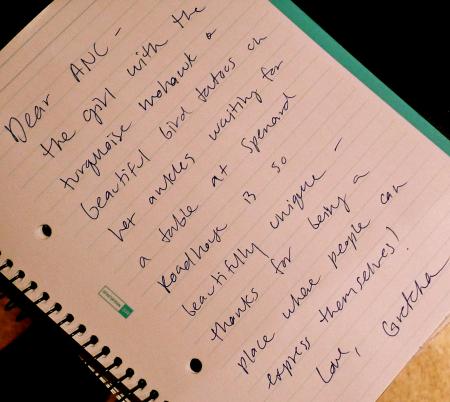 Dear ANC -
the girl with the
turquoise mohawk &
beautiful bird tatoos on
her ankles waiting for
a table at Spenard
Roadhouse is so
beautifully unique -
thanks for being a
place where people can
express themselves!
Love, Gretchen